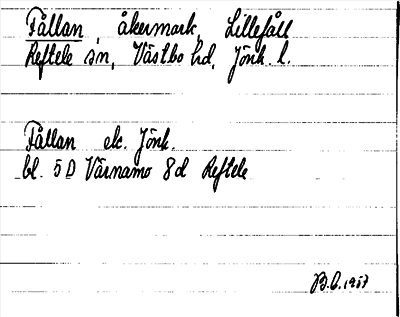 Fållan, åkermark, Lillefåll
Reftele sn, Västbo hd, Jönk. l.
Fållan ek. Jönk.
bl. 5D Värnamo 8d Reftele
B.C. 1957